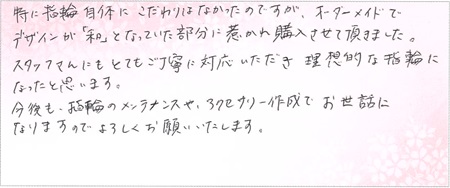 特に指輪自体にこだわりはなかったのですが、オーダーメイドで
デザインが「和」となっていた部分に惹かれ購入させて頂きました。
スタッフさんにもとてもご丁寧に対応いただき 理想的な指輪に
なったと思います。
今後も、指輪のメンテナンスや、アクセサリー作成で お世話に
なりますのでよろしくお願いいたします。